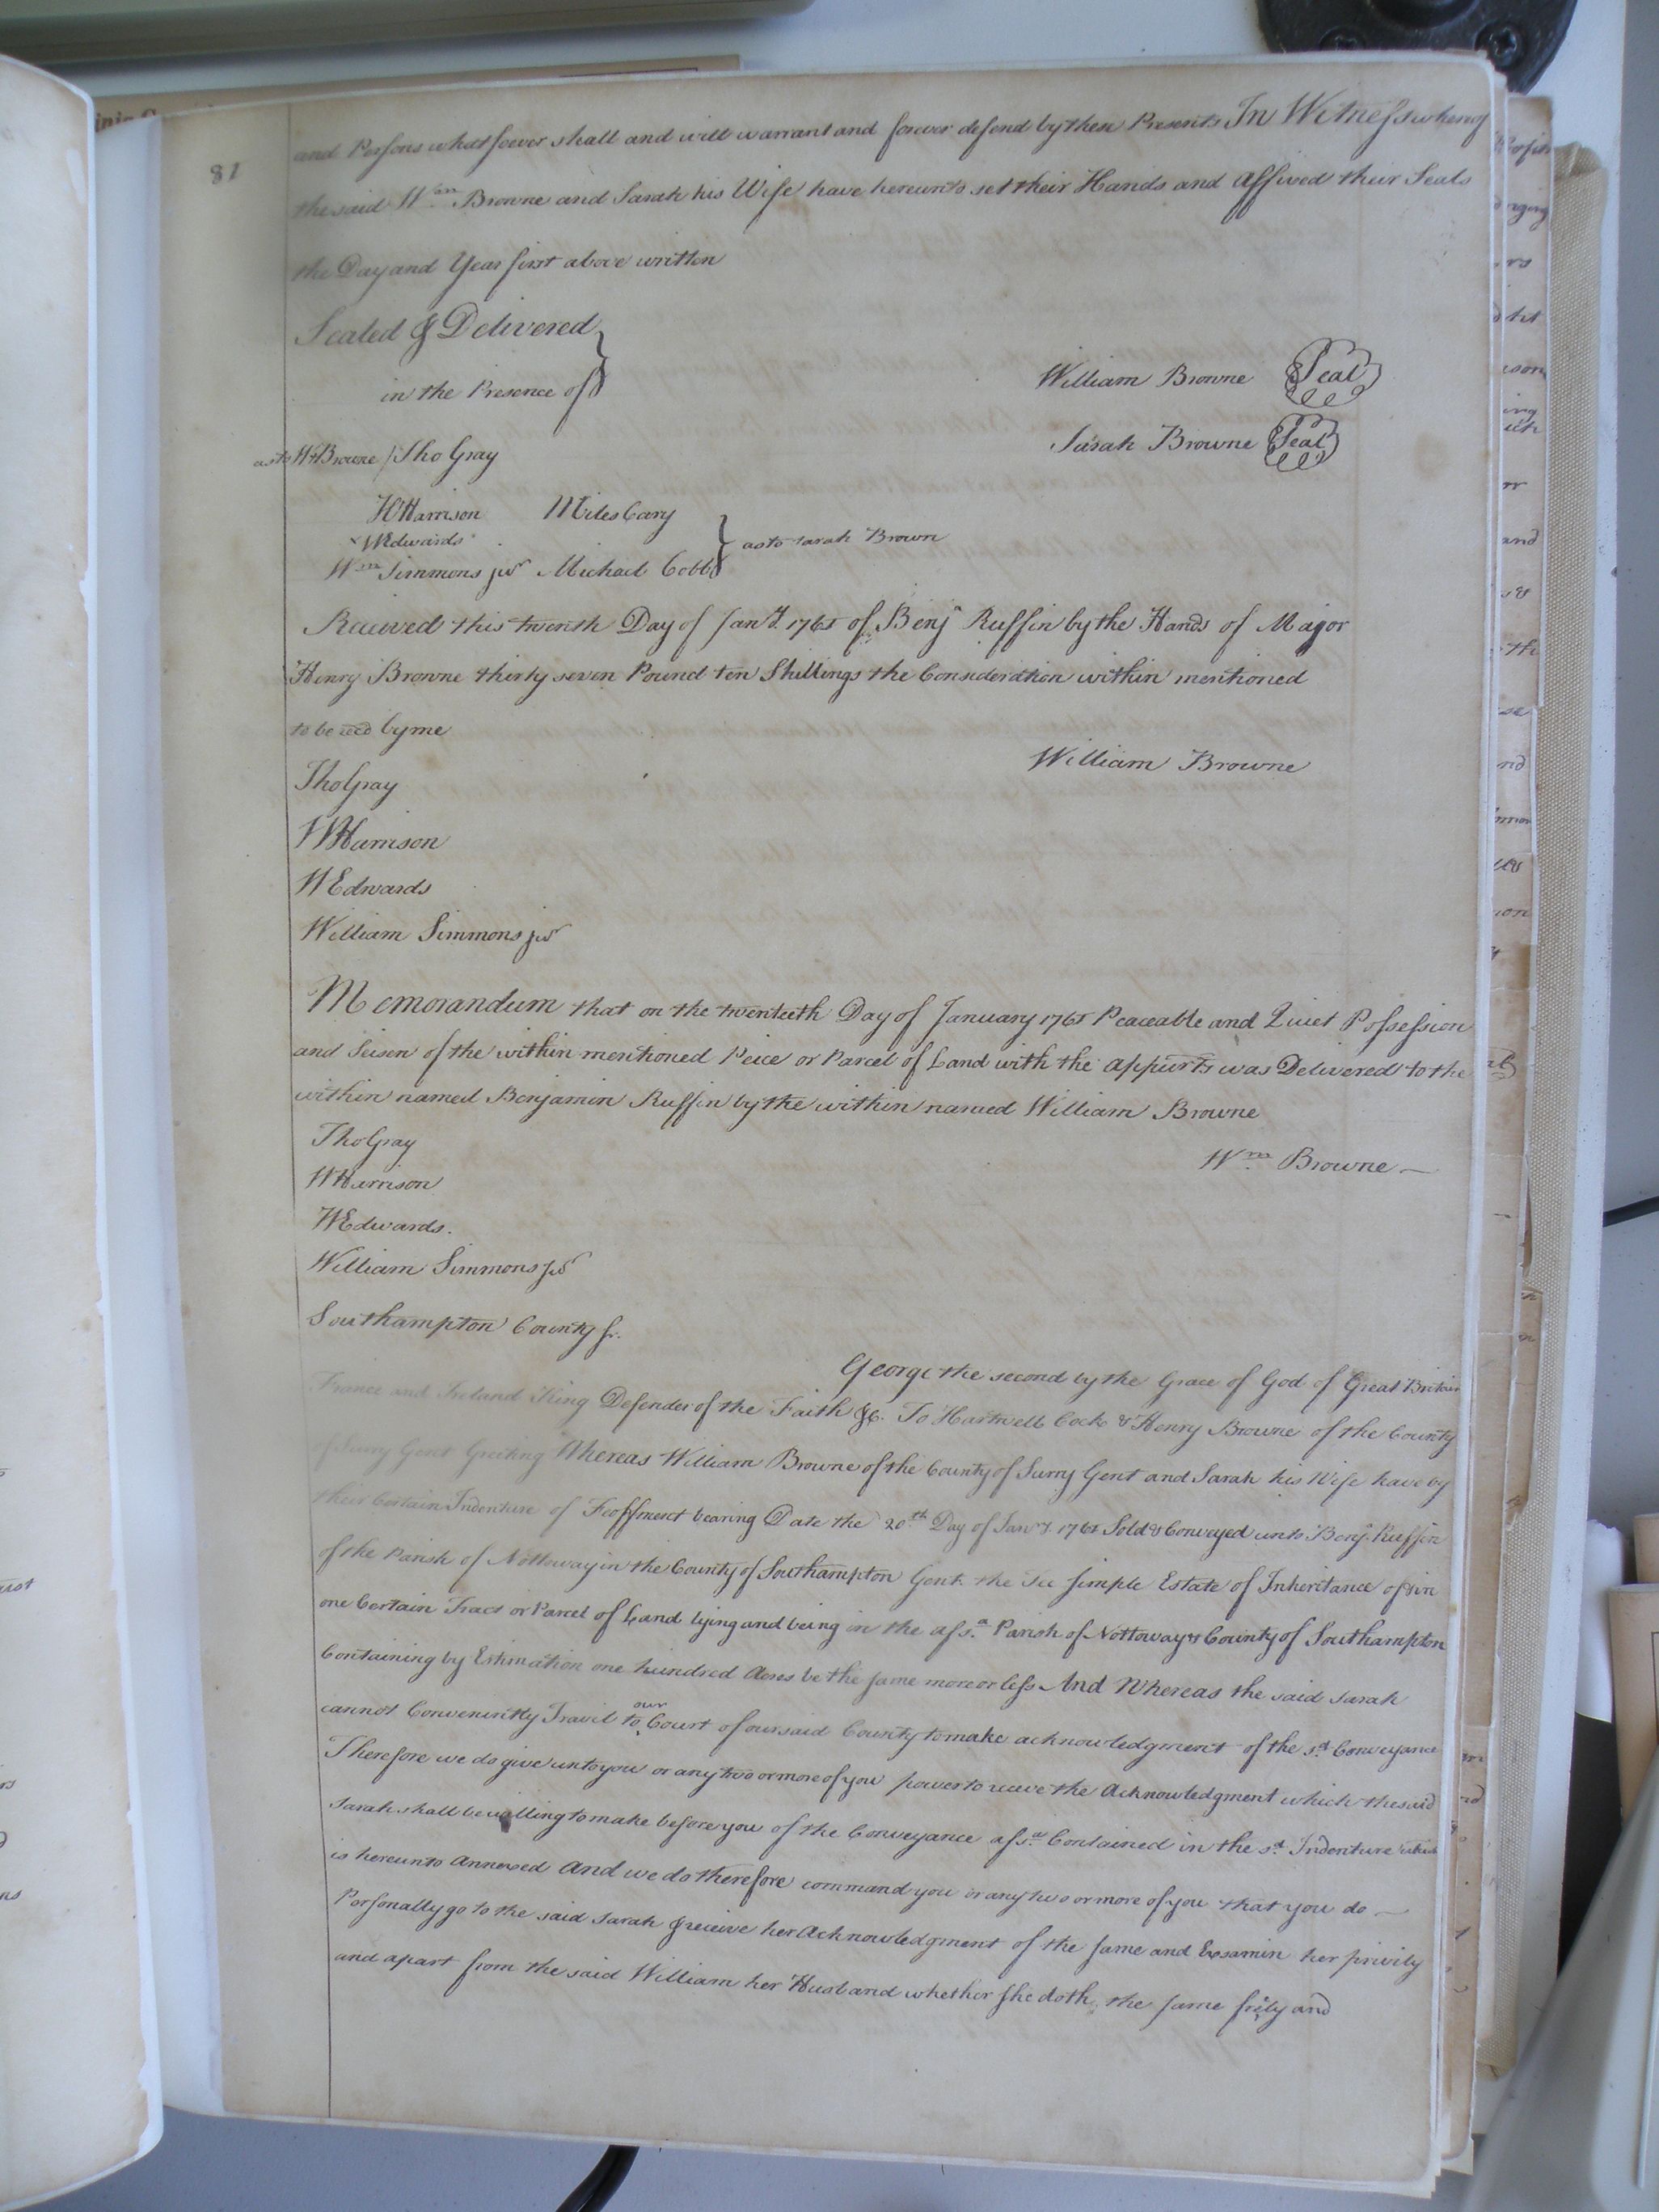 81
and Persons whatsoever shall and will warrant and forever defend by these Presents In Witness whereof
the said Wm Browne and Sarah his Wife have hereunto set their Hands and affixed their Seals
the Day and Year first above written
Sealed & Delivered
in the Presence of
William Browne Seal
Sarah Browne Seal
as to Wm Browne Tho Gray
Harrison Miles Cary
WEdwards
as to Sarah Brown
Wm Simmons junr Michael Cobb
Received this twenth Day of Jany. 1761 of Benj Ruffin by the Hands of Major
Henry Browne thirty seven Pound ten Shillings the Consideration within mentioned
to be recd by me
William Browne
Tho Gray
WHarrison
WEdwards
William Simmons junr
Memorandum that on the twentieth Day of January 1761 Peaceable and Quiet Possession
and Seisen of the within mentioned Peice or Parcel of Land with the appurts was Delivered to the
within named Benjamin Ruffin by the within named William Browne
Tho Gray
Wm Browne
WHarrison
WEdwards.
William Simmons junr
Southampton County ss.
George the second by the Grace of God of Great Britain
France and Ireland King Defender of the Faith &c. To Hartwell Cock & Henry Browne of the County
of Surry Gent Greeting Whereas William Browne of the County of Surry Gent and Sarah his Wife have by
their Certain Indenture of Feoffment bearing Date the 20th Day of Jany. 1761 Sold & Conveyed unto Benj. Ruffin
of the Parish of Nottoway in the County of Southampton Gent. the Fee Simple Estate of Inheritance of & in
one Certain Tract or Parcel of Land lying and being in the afsd. Parish of Nottoway & County of Southampton
Containing by Estimation one hundred Acres be the same more or less And Whereas the said Sarah
cannot Conveniently Travil to our Court of our said County to make acknowledgment of the sd. Conveyance
Therefore we do give unto you or any two or more of you power to receive the Acknowledgment which the said
Sarah shall be willing to make before you of the Conveyance afsd. Contained in the sd. Indenture which
is hereunto Annexed And we do therefore command you or any two or more of you that you do
Personally go to the said Sarah & receive her Acknowledgment of the same and Examin her privily
and apart from the said William her Husband whether she doth the same freely and